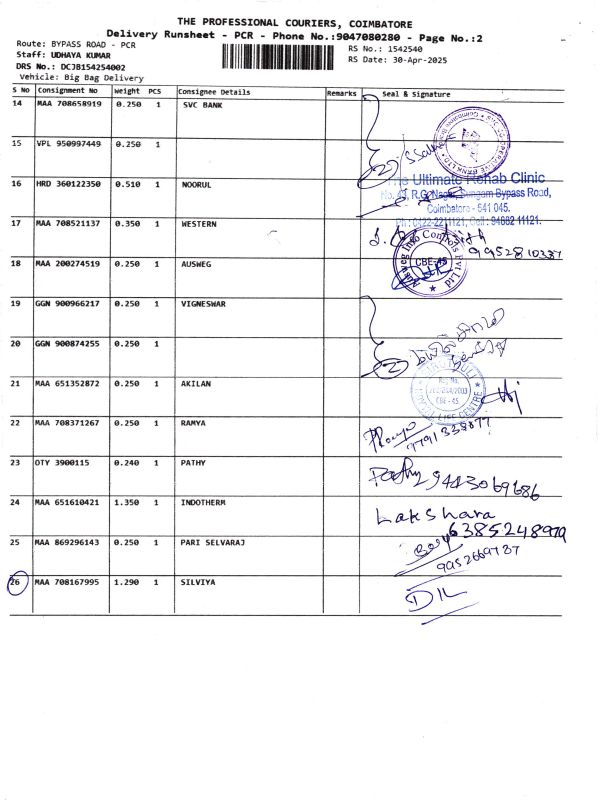 THE PROFESSIONAL COURIERS, COIMBATORE
Delivery Runsheet - PCR - Phone No.:9047080280 - Page No.:2
Route: BYPASS ROAD - PCR
RS No.: 1542540
Staff: UDHAYA KUMAR
RS Date: 30-Apr-2025
DRS No.: DCJB154254002
Vehicle: Big Bag Delivery
S No Consignment No Weight PCS Consignee Details Remarks Seal & Signature
14 MAA 708658919 0.250 1 SVC BANK
15 VPL 950997449 0.250 1
2
16 HRD 360122350 0.510 1 NOORUL
Ultimate Rehab Clinic
Bypass Road,
Coimbatore - 641 045.
17 MAA 708521137 0.350 1 WESTERN
9952810337
18 MAA 200274519 0.250 1 AUSWEG
CBE-45
19 GGN 900966217 0.250 1 VIGNESWAR
20 GGN 900874255 0.250 1
2
21 MAA 651352872 0.250 1 AKILAN
CBE - 45
LIFE CENTRE
22 MAA 708371267 0.250 1 RAMYA
Ramya
23 OTY 3900115 0.240 1 PATHY
Pathy 9443069686
24 MAA 651610421 1.350 1 INDOTHERM
Lakshara
6385248979
25 MAA 869296143 0.250 1 PARI SELVARAJ
9952669737
26 MAA 708167995 1.290 1 SILVIYA